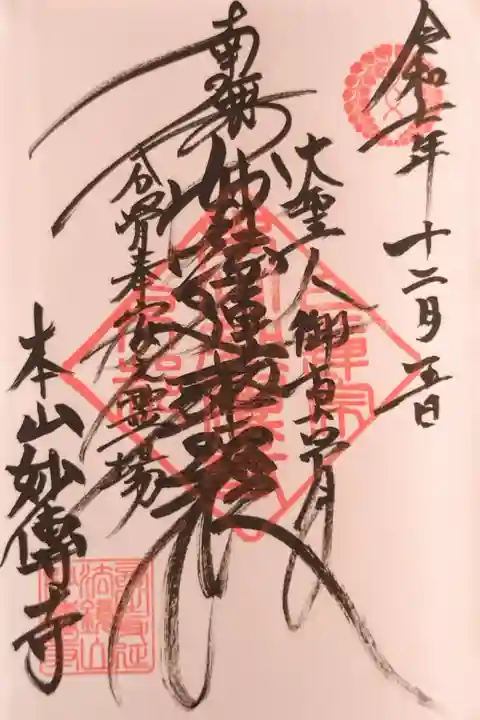 令和二年十二月五日
大聖人御真骨
南無妙法蓮華経
分骨奉安之霊場
本山妙傳寺
日蓮宗
法鏡山